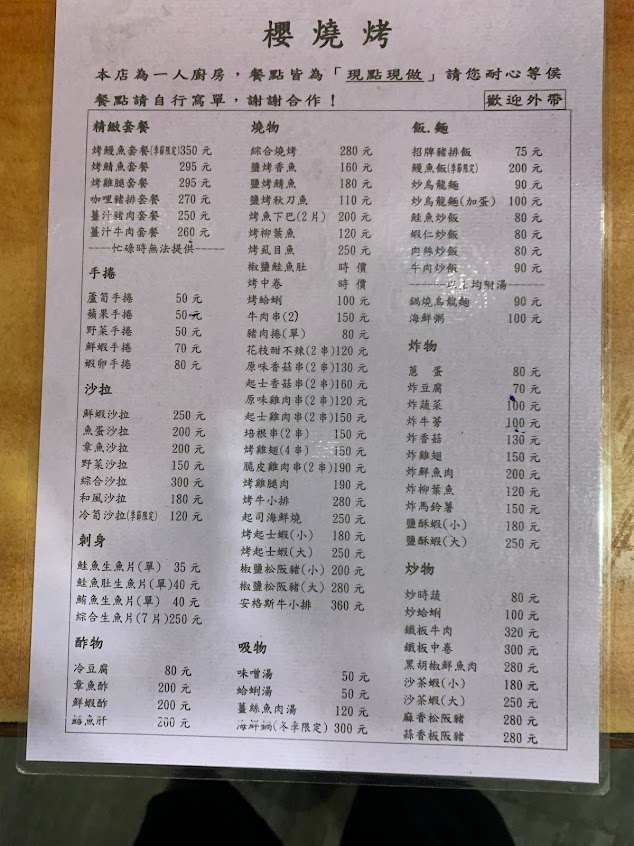 櫻燒烤
本店為一人廚房，餐點皆為「現點現做」請您耐心等侯
餐點請自行寫單，謝謝合作！
歡迎外帶
精緻套餐
烤鰻魚套餐(季節限定)350 元
烤鯖魚套餐 295 元
烤雞腿套餐 295 元
咖哩豬排套餐 270 元
薑汁豬肉套餐 250 元
薑汁牛肉套餐 260 元
----忙碌時無法提供-----
手捲
蘆筍手捲 50 元
蘋果手捲 50 元
野菜手捲 50 元
鮮蝦手捲 70 元
蝦卵手捲 80 元
沙拉
鮮蝦沙拉 250 元
魚蛋沙拉 200 元
章魚沙拉 200 元
野菜沙拉 150 元
綜合沙拉 300 元
和風沙拉 180 元
冷筍沙拉(季節限定) 120 元
刺身
鮭魚生魚片(單) 35 元
鮭魚肚生魚片(單)40 元
鮪魚生魚片(單) 40 元
綜合生魚片(7 片)250 元
酢物
冷豆腐 80 元
章魚酢 200 元
鮮蝦酢 200 元
魚肝 200 元
燒物
綜合燒烤 280 元
鹽烤香魚 160 元
鹽烤鯖魚 180 元
鹽烤秋刀魚 110 元
烤魚下巴(2 片) 200 元
烤柳葉魚 120 元
烤虱目魚 250 元
椒鹽鮭魚肚 時 價
烤中卷 時 價
烤蛤蜊 100 元
牛肉串(2) 150 元
豬肉捲(單) 80 元
花枝甜不辣(2 串)120 元
原味香菇串(2 串)130 元
起士香菇串(2 串)160 元
原味雞肉串(2 串)120 元
起士雞肉串(2 串)150 元
培根串(2 串) 150 元
烤雞翅(4 串) 150 元
脆皮雞肉串(2 串)190 元
烤雞腿肉 190 元
烤牛小排 280 元
起司海鮮燒 250 元
烤起士蝦(小) 180 元
烤起士蝦(大) 250 元
椒鹽松阪豬(小) 200 元
椒鹽松阪豬(大) 280 元
安格斯牛小排 360 元
吸物
味噌湯 50 元
蛤蜊湯 50 元
薑絲魚肉湯 120 元
海鮮鍋(冬季限定) 300 元
飯.麵
招牌豬排飯 75 元
鰻魚飯(季節限定) 200 元
炒烏龍麵 90 元
炒烏龍麵(加蛋) 100 元
鮭魚炒飯 90 元
蝦仁炒飯 90 元
肉絲炒飯 80 元
牛肉炒飯 80 元
均附湯------
鍋燒烏龍麵 90 元
海鮮粥 100 元
炸物
蔥 蛋 80 元
炸豆腐 70 元
炸蔬菜 100 元
炸牛蒡 100 元
炸香菇 130 元
炸雞翅 150 元
炸鮮魚肉 200 元
炸柳葉魚 120 元
炸馬鈴薯 150 元
鹽酥蝦(小) 180 元
鹽酥蝦(大) 250 元
炒物
炒時蔬 80 元
炒蛤蜊 100 元
鐵板牛肉 320 元
鐵板中卷 300 元
黑胡椒鮮魚肉 280 元
沙茶蝦(小) 180 元
沙茶蝦(大) 250 元
麻香松阪豬 280 元
蒜香板阪豬 280 元